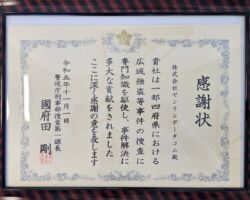 感謝状
株式会社ゼンリンデータコム殿
貴社は一都四府県における
広域強盗等事件の捜査に
専門知識を駆使し、事件解決に
多大な貢献をされました
ここに深く感謝の意を表します
令和五年十一月一日
警視庁刑事部捜査第一課長
國府田 剛